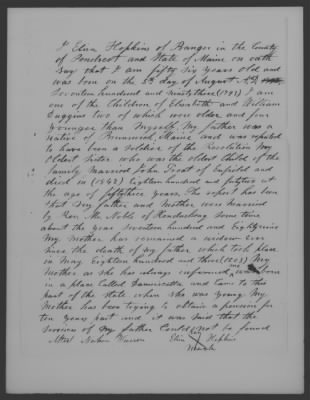 I Eliza Hopkins of Bangor in the County
of Penobscot and State of Maine on oath
say that I am fifty six years old and
was born on the day of August A.D.
Seventeen hundred and ninety three (1793) I am
one of the Children of Elizabeth and William
Duggins two of which were older and four
younger than Myself, My father was a
native of Maine and was reputed
to have been a Soldier of the Revolution My
Oldest Sister who was the oldest Child of the
family Married John Treat of Enfield and
died in (1843) Eighteen hundred and at
the age of years. The report has been
that My father and Mother were Married
by Rev. Mr. Noble of some time
about the year Seventeen hundred and
My Mother has remained a widow ever
since the death of my father, which took place
in May Eighteen hundred and three (1803) My
Mother as she has always informed me was born
in a place Called Damriscotta and Came to this
part of the State when she was young. My
Mother has been trying to obtain a pension for
ten years past and it was said that the
services of my father Could not be found
Attest Eliza her X Hopkins
mark